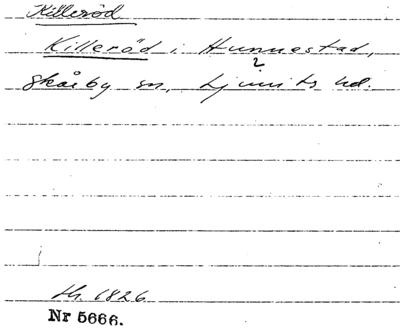 Killeröd
Killeröd i Hunnestad,
2
Skårby sn, Ljunits hd.
1826
Nr 5666.